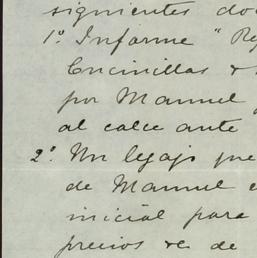 siguientes do
1º. Informe "Re
Encinillas &
por Manuel
al calce ante
2º. Un legajo que
de Manuel
inicial para
precios &c de